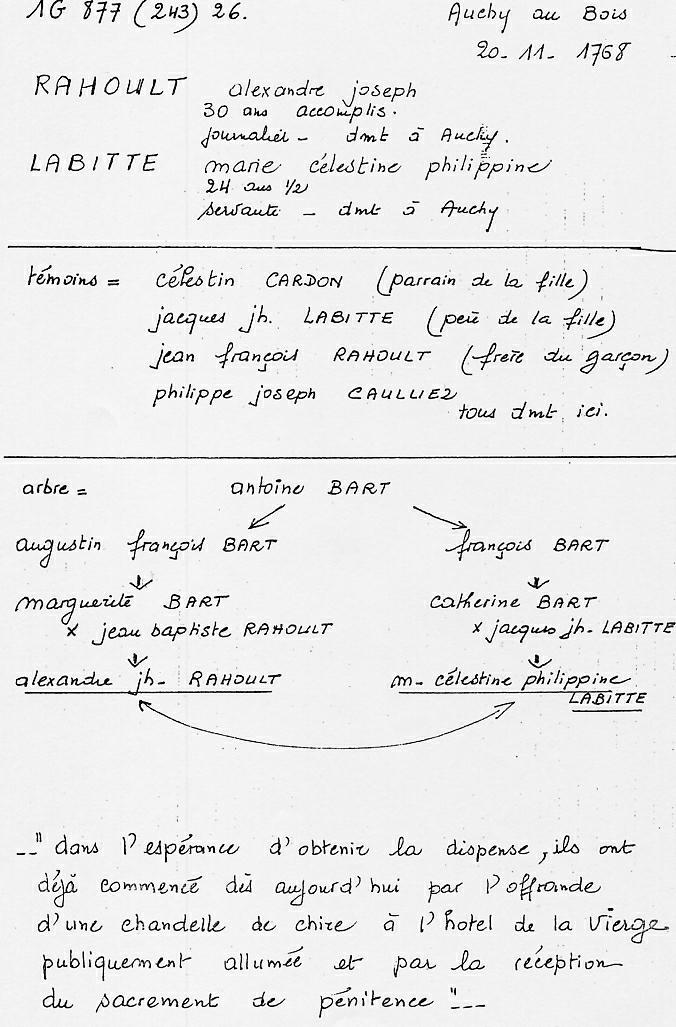 1G 877 (243) 26. Auchy au Bois
20-11-1768
RAHOULT alexandre joseph
30 ans accomplis.
journalier - dmt à Auchy.
LABITTE marie célestine philippine
24 ans 1/2
servante - dmt à Auchy
témoins = célestin CARDON (parrain de la fille)
jacques jh. LABITTE (père de la fille)
jean françois RAHOULT (frère du garçon)
philippe joseph CAULLIEZ
tous dmt ici.
arbre = antoine BART
augustin françois BART françois BART
marguerite BART catherine BART
x jean baptiste RAHOULT x jacques jh. LABITTE
alexandre jh- RAHOULT m- célestine philippine
LABITTE
--" dans l'espérance d'obtenir la dispense, ils ont
déjà commencé dès aujourd'hui par l'offrande
d'une chandelle de chire à l'hotel de la Vierge
publiquement allumée et par la réception
du sacrement de pénitence "---